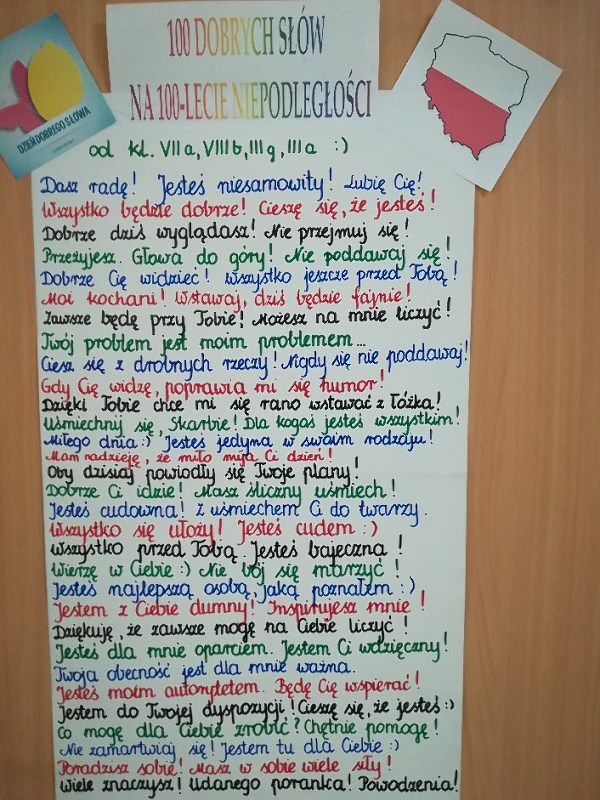 100 DOBRYCH SŁÓW
NA 100-LECIE NIEPODLEGŁOŚCI
DZIEŃ DOBREGO SŁOWA
od kl. VIIa, VIIIb, IIIg, IIIa :)
Dasz radę! Jesteś niesamowity! Lubię Cię!
Wszystko będzie dobrze! Cieszę się, że jesteś!
Dobrze dziś wyglądasz! Nie przejmuj się!
Przeżyjesz. Głowa do góry! Nie poddawaj się!
Dobrze Cię widzieć! Wszystko jeszcze przed Tobą!
Moi kochani! Wstawaj, dziś będzie fajnie!
Zawsze będę przy Tobie! Możesz na mnie liczyć!
Twój problem jest moim problemem...
Ciesz się z drobnych rzeczy! Nigdy się nie poddawaj!
Gdy Cię widzę, poprawia mi się humor!
Dzięki Tobie chce mi się rano wstawać z łóżka!
Uśmiechnij się, Skarbie! Dla kogoś jesteś wszystkim!
Miłego dnia :) Jesteś jedyna w swoim rodzaju!
Mam nadzieję, że miło mija Ci dzień!
Oby dzisiaj powiodły się Twoje plany!
Dobrze Ci idzie! Masz śliczny uśmiech!
Jesteś cudowna! Z uśmiechem Ci do twarzy.
Wszystko się ułoży! Jesteś cudem :)
Wszystko przed Tobą. Jesteś bajeczna!
Wierzę w Ciebie :) Nie bój się marzyć!
Jesteś najlepszą osobą, jaką poznałem :)
Jestem z Ciebie dumny! Inspirujesz mnie!
Dziękuję, że zawsze mogę na Ciebie liczyć!
Jesteś dla mnie oparciem. Jestem Ci wdzięczny!
Twoja obecność jest dla mnie ważna.
Jesteś moim autorytetem. Będę Cię wspierać!
Jestem do Twojej dyspozycji! Cieszę się, że jesteś :)
Co mogę dla Ciebie zrobić? Chętnie pomogę!
Nie zamartwiaj się! Jestem tu dla Ciebie :)
Poradzisz sobie! Masz w sobie wiele siły!
Wiele znaczysz! Udanego poranka! Powodzenia!